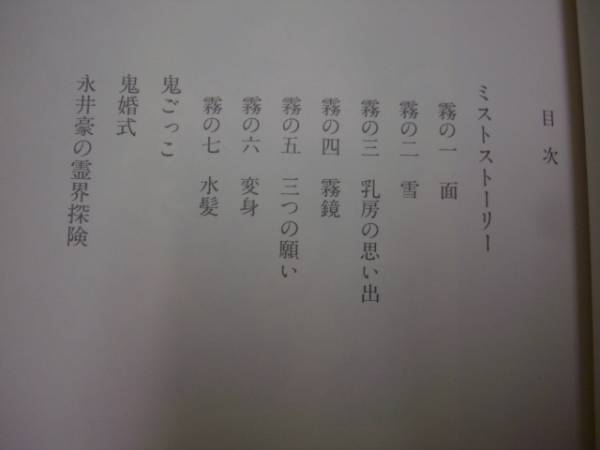 目次
ミストストーリー
霧の一 面
霧の二 雪
霧の三 乳房の思い出
霧の四 霧鏡
霧の五 三つの願い
霧の六 変身
霧の七 水髪
鬼ごっこ
鬼婚式
永井豪の霊界探険